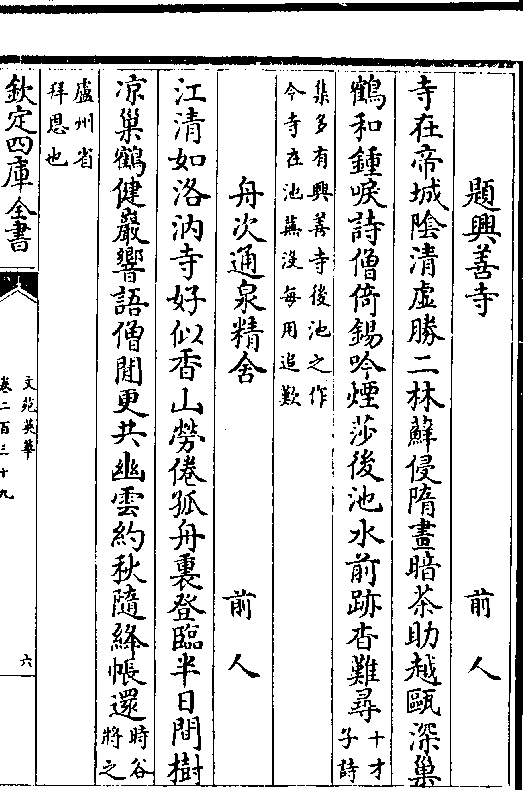 題興善寺　前人
寺在帝城陰清虛勝二林蘚侵隋畫暗茶助越甌深巢
鶴和鍾唳詩僧倚錫吟煙莎後池水前跡杳難尋十才子詩
集多有興善寺後池之作
今寺在池蕪沒每用追歎
舟次通泉精舍　前人
江清如洛汭寺好似香山勞倦孤舟裏登臨半日間樹
凉巢鶴健巖響語僧閒更共幽雲約秋隨絳帳還時谷將之
盧州省
拜恩也
欽定四庫全書
文苑英華
卷二百三十九
六